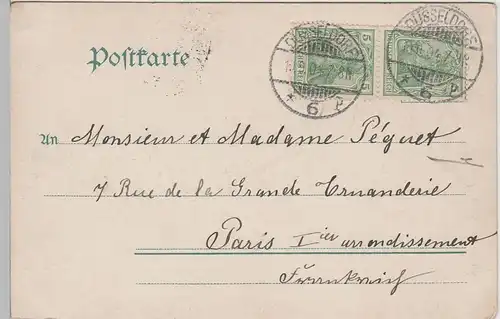 Postkarte
DÜSSELDORF
DÜSSELDORF
5
5
* 6 p
* 6 p
An Monsieur et Madame Péguet
7 Rue de la Grande Truanderie
Paris I ier arrondissement
Frankreich